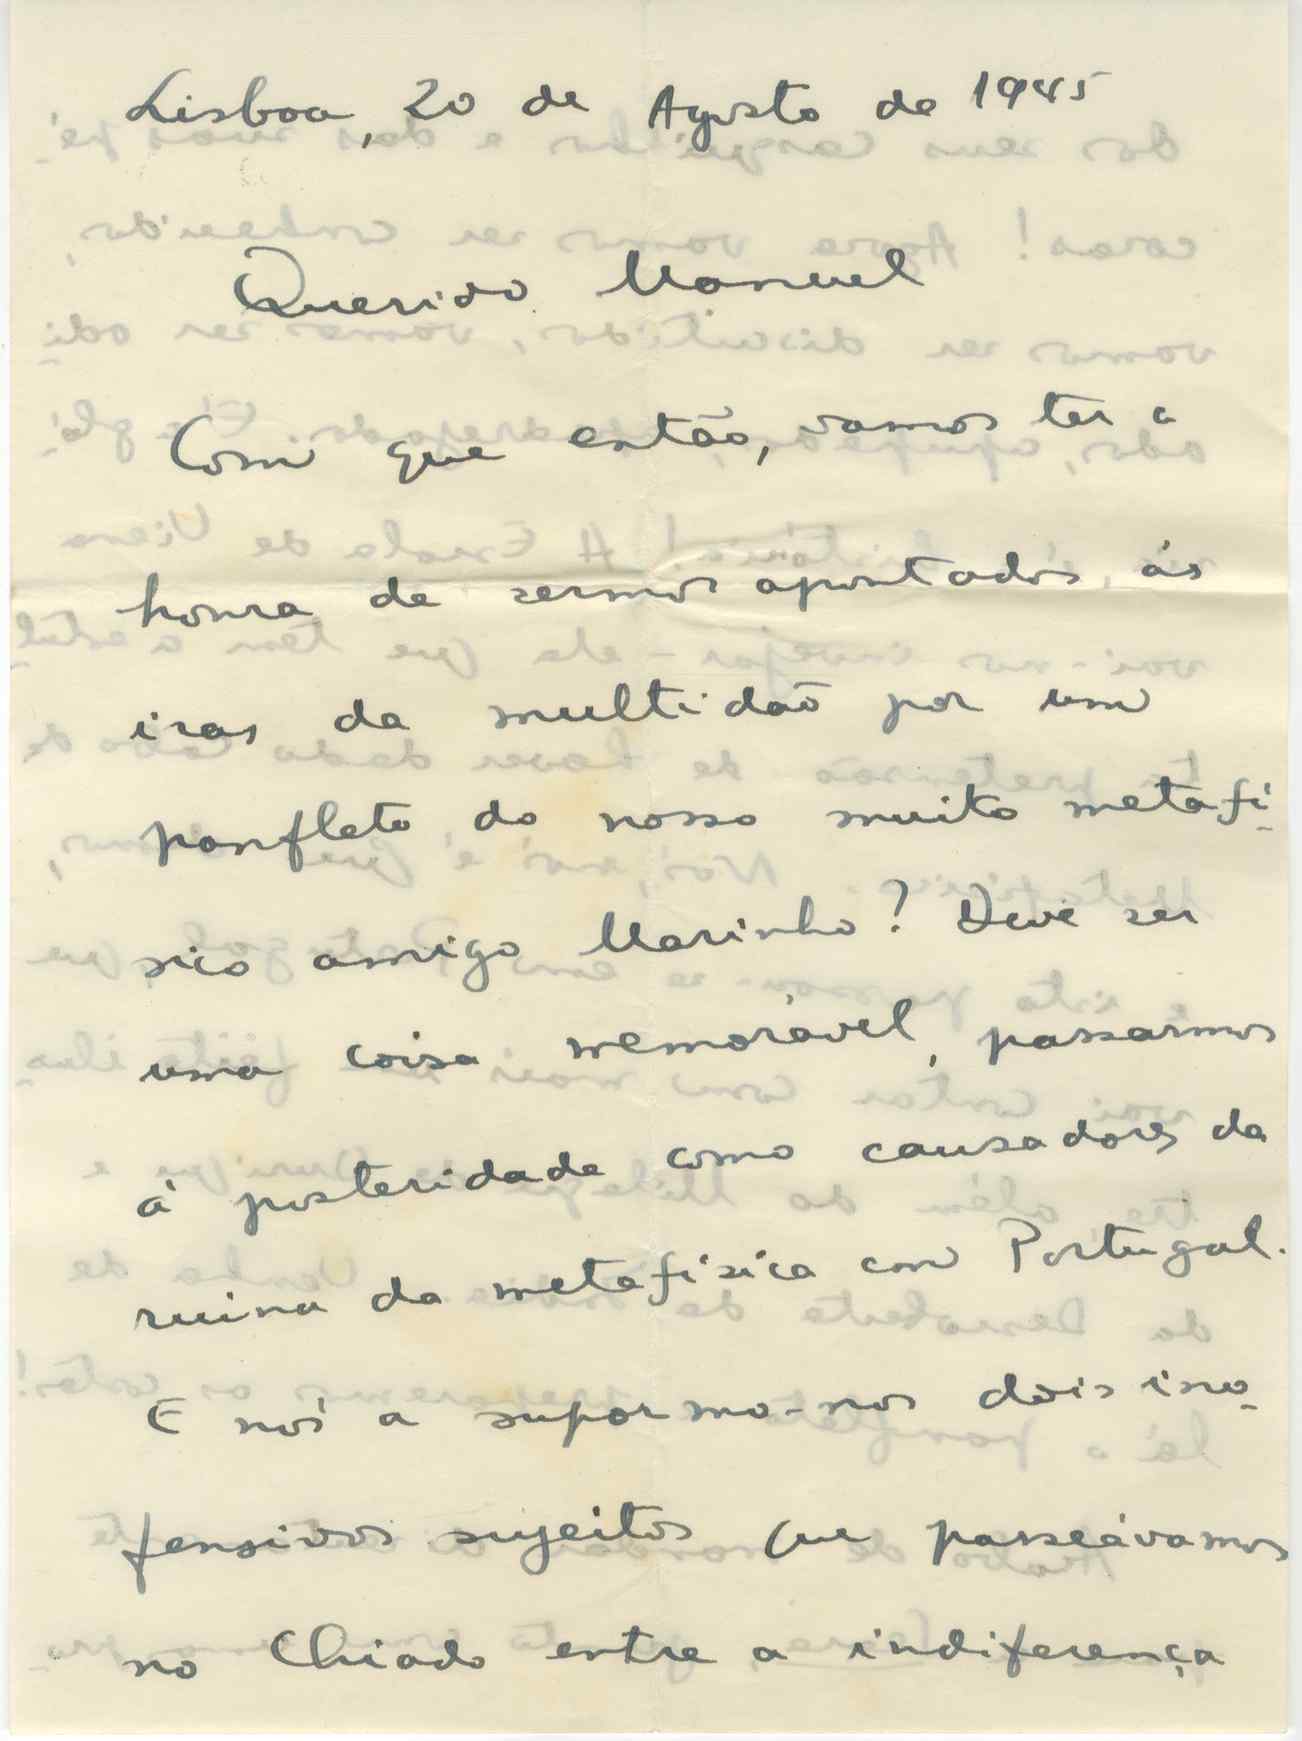 Lisboa, 20 de Agosto de 1945
Querido Manuel
Com que então, vamos ter a
honra de sermos apontados às
iras da multidão por um
panfleto do nosso muito metafí-
sico amigo Marinho? Deve ser
uma coisa memorável, passarmos
à posteridade como causadores da
ruina da metafisica em Portugal.
E nós a supormo-nos dois ino-
fensivos sujeitos que passeávamos
no Chiado entre a indiferença